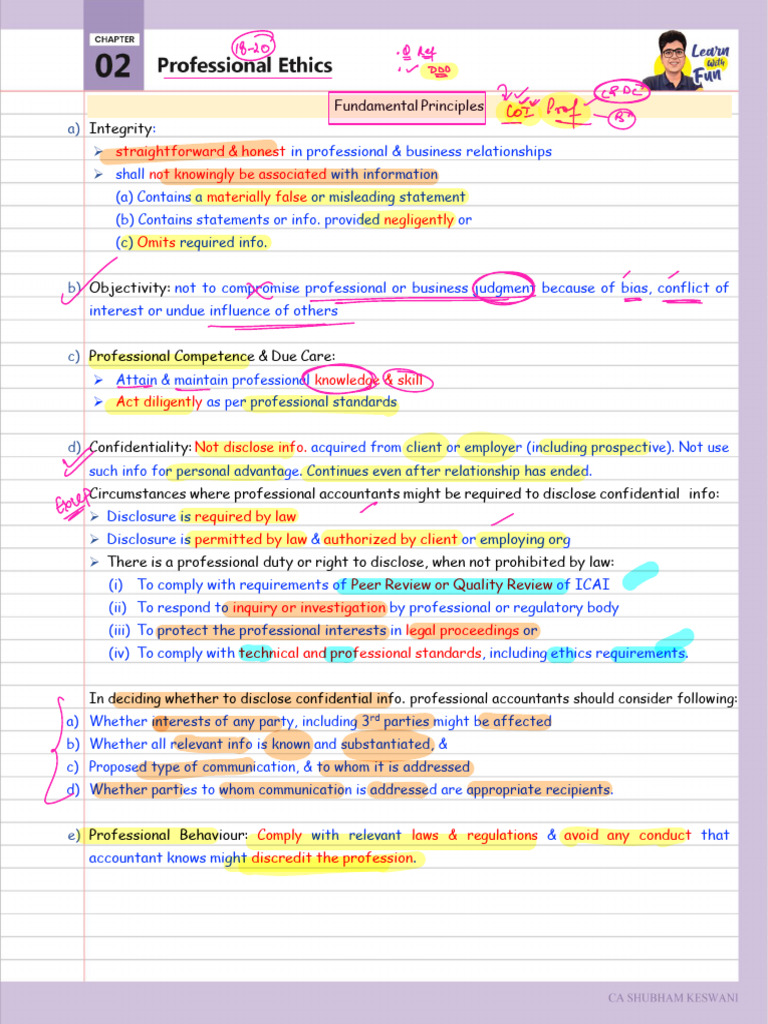 CHAPTER
02 Professional Ethics
18-20
Learn
With
Fun
Fundamental Principles
COI Prof
a) Integrity:
➢ straightforward & honest in professional & business relationships
➢ shall not knowingly be associated with information
(a) Contains a materially false or misleading statement
(b) Contains statements or info. provided negligently or
(c) Omits required info.
b) Objectivity: not to compromise professional or business judgment because of bias, conflict of
interest or undue influence of others
c) Professional Competence & Due Care:
➢ Attain & maintain professional knowledge & skill
➢ Act diligently as per professional standards
d) Confidentiality: Not disclose info. acquired from client or employer (including prospective). Not use
such info for personal advantage. Continues even after relationship has ended.
Circumstances where professional accountants might be required to disclose confidential info:
➢ Disclosure is required by law
➢ Disclosure is permitted by law & authorized by client or employing org
➢ There is a professional duty or right to disclose, when not prohibited by law:
(i) To comply with requirements of Peer Review or Quality Review of ICAI
(ii) To respond to inquiry or investigation by professional or regulatory body
(iii) To protect the professional interests in legal proceedings or
(iv) To comply with technical and professional standards, including ethics requirements.
In deciding whether to disclose confidential info. professional accountants should consider following:
a) Whether interests of any party, including 3rd parties might be affected
b) Whether all relevant info is known and substantiated, &
c) Proposed type of communication, & to whom it is addressed
d) Whether parties to whom communication is addressed are appropriate recipients.
e) Professional Behaviour: Comply with relevant laws & regulations & avoid any conduct that
accountant knows might discredit the profession.
CA SHUBHAM KESWANI